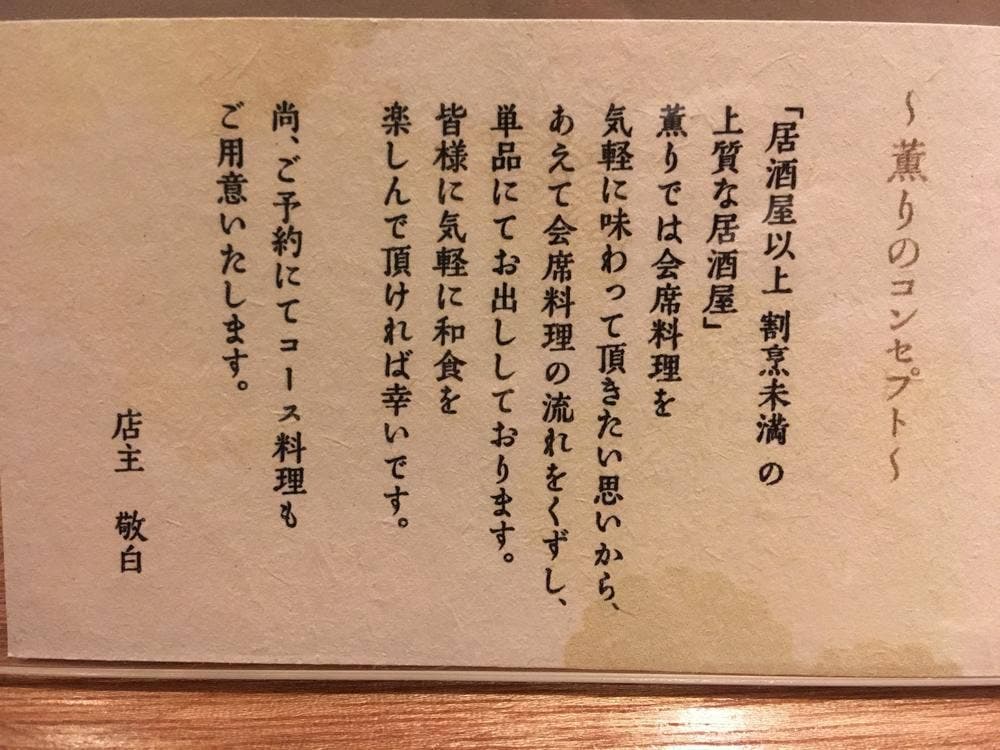 ～薫りのコンセプト～
「居酒屋以上 割烹未満 の
上質な居酒屋」
薫りでは会席料理を
気軽に味わって頂きたい思いから、
あえて会席料理の流れをくずし、
単品にてお出ししております。
皆様に気軽に和食を
楽しんで頂ければ幸いです。
尚、ご予約にてコース料理も
ご用意いたします。
店主 敬白